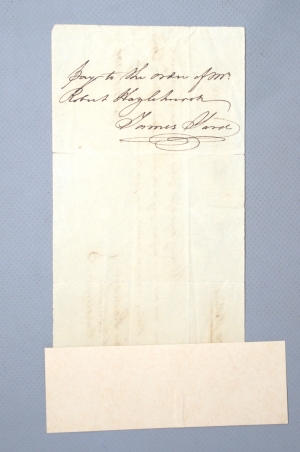 Pay to the order of Mr.
Robert Hazlehurst
James Yard